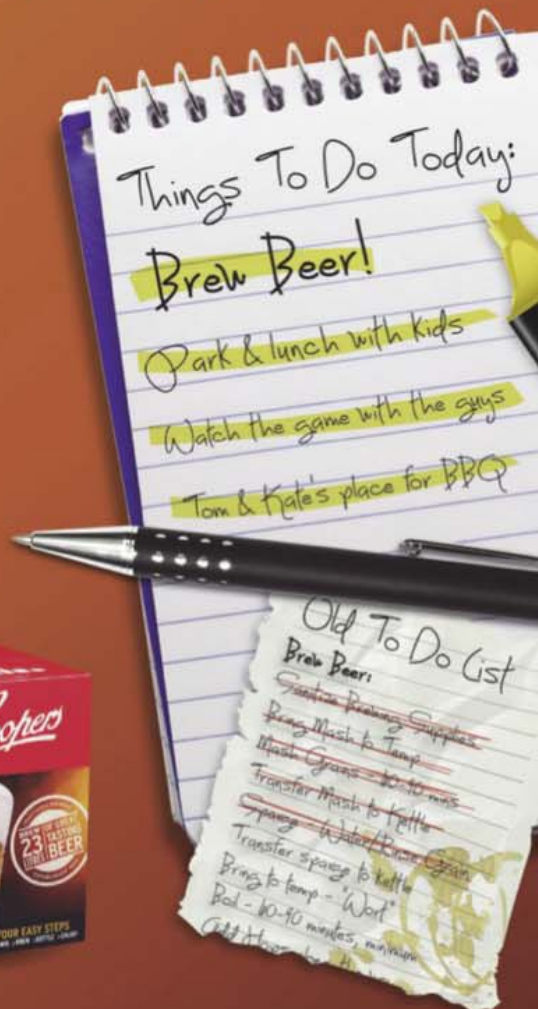 Things To Do Today:
Brew Beer!
Park & lunch with kids
Watch the game with the guys
Tom & Kate's place for BBQ
Old To Do List
Brew Beer:
Sanitize Brewing Supplies
Bring Mash to Temp
Mash Grains - 60-90 mins
Transfer Mash to Kettle
Sparge - Water/Rinse Grain
Transfer sparge to kettle
Bring to temp - "Wort"
Boil - 60-90 minutes, minimum
opers
BREW OF GREAT
23 TASTING
LITRES BEER
OUR EASY STEPS